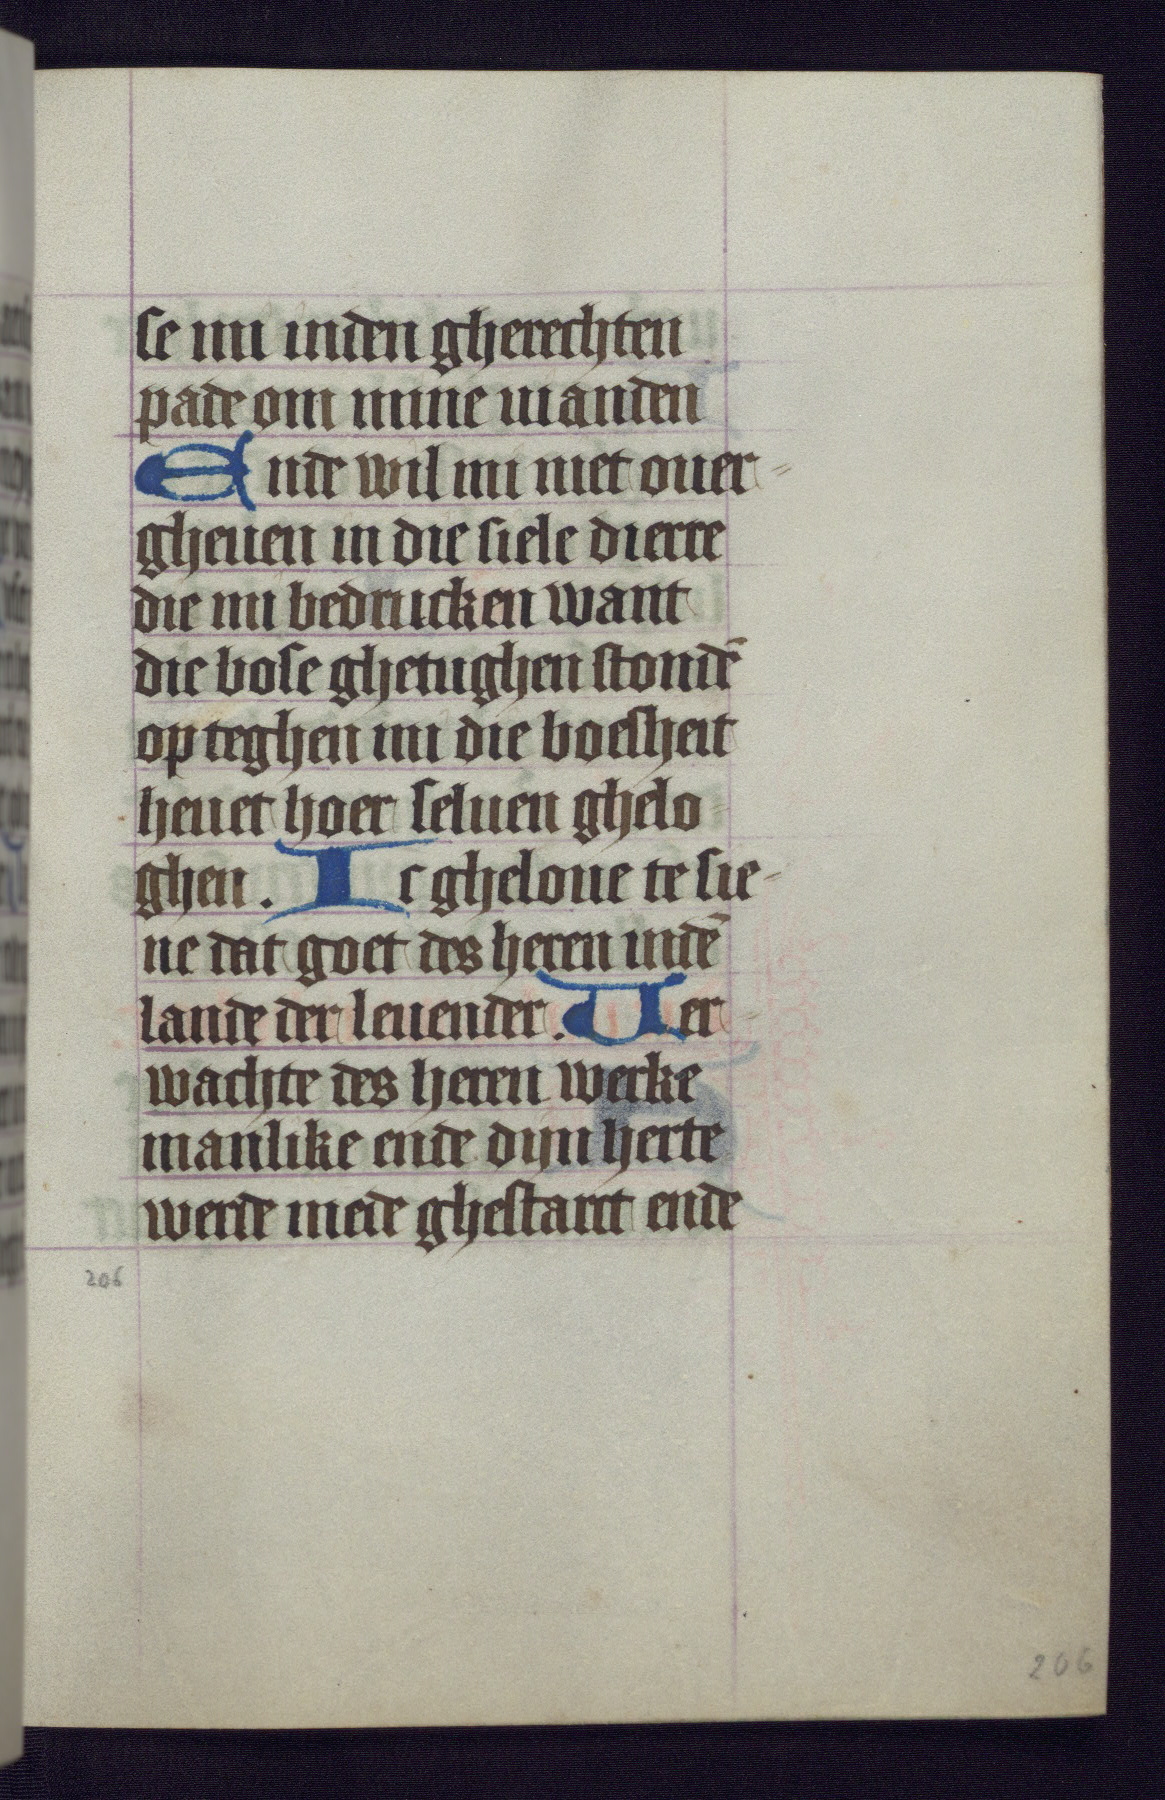 se mi inden gherechten
pade om mine uianden
Ende wil mi niet ouer-
gheuen in die siele dierre
die mi bedrucken want
die bose ghetughen stondē
op teghen mi die boesheit
heuet hoer seluen ghelo
ghen. Ic gheloue te sie-
ne dat goet des heren indē
lande der leuender. Ver
wachte des heren werke
manlike ende dijn herte
werde mede ghestarct ende
206
206